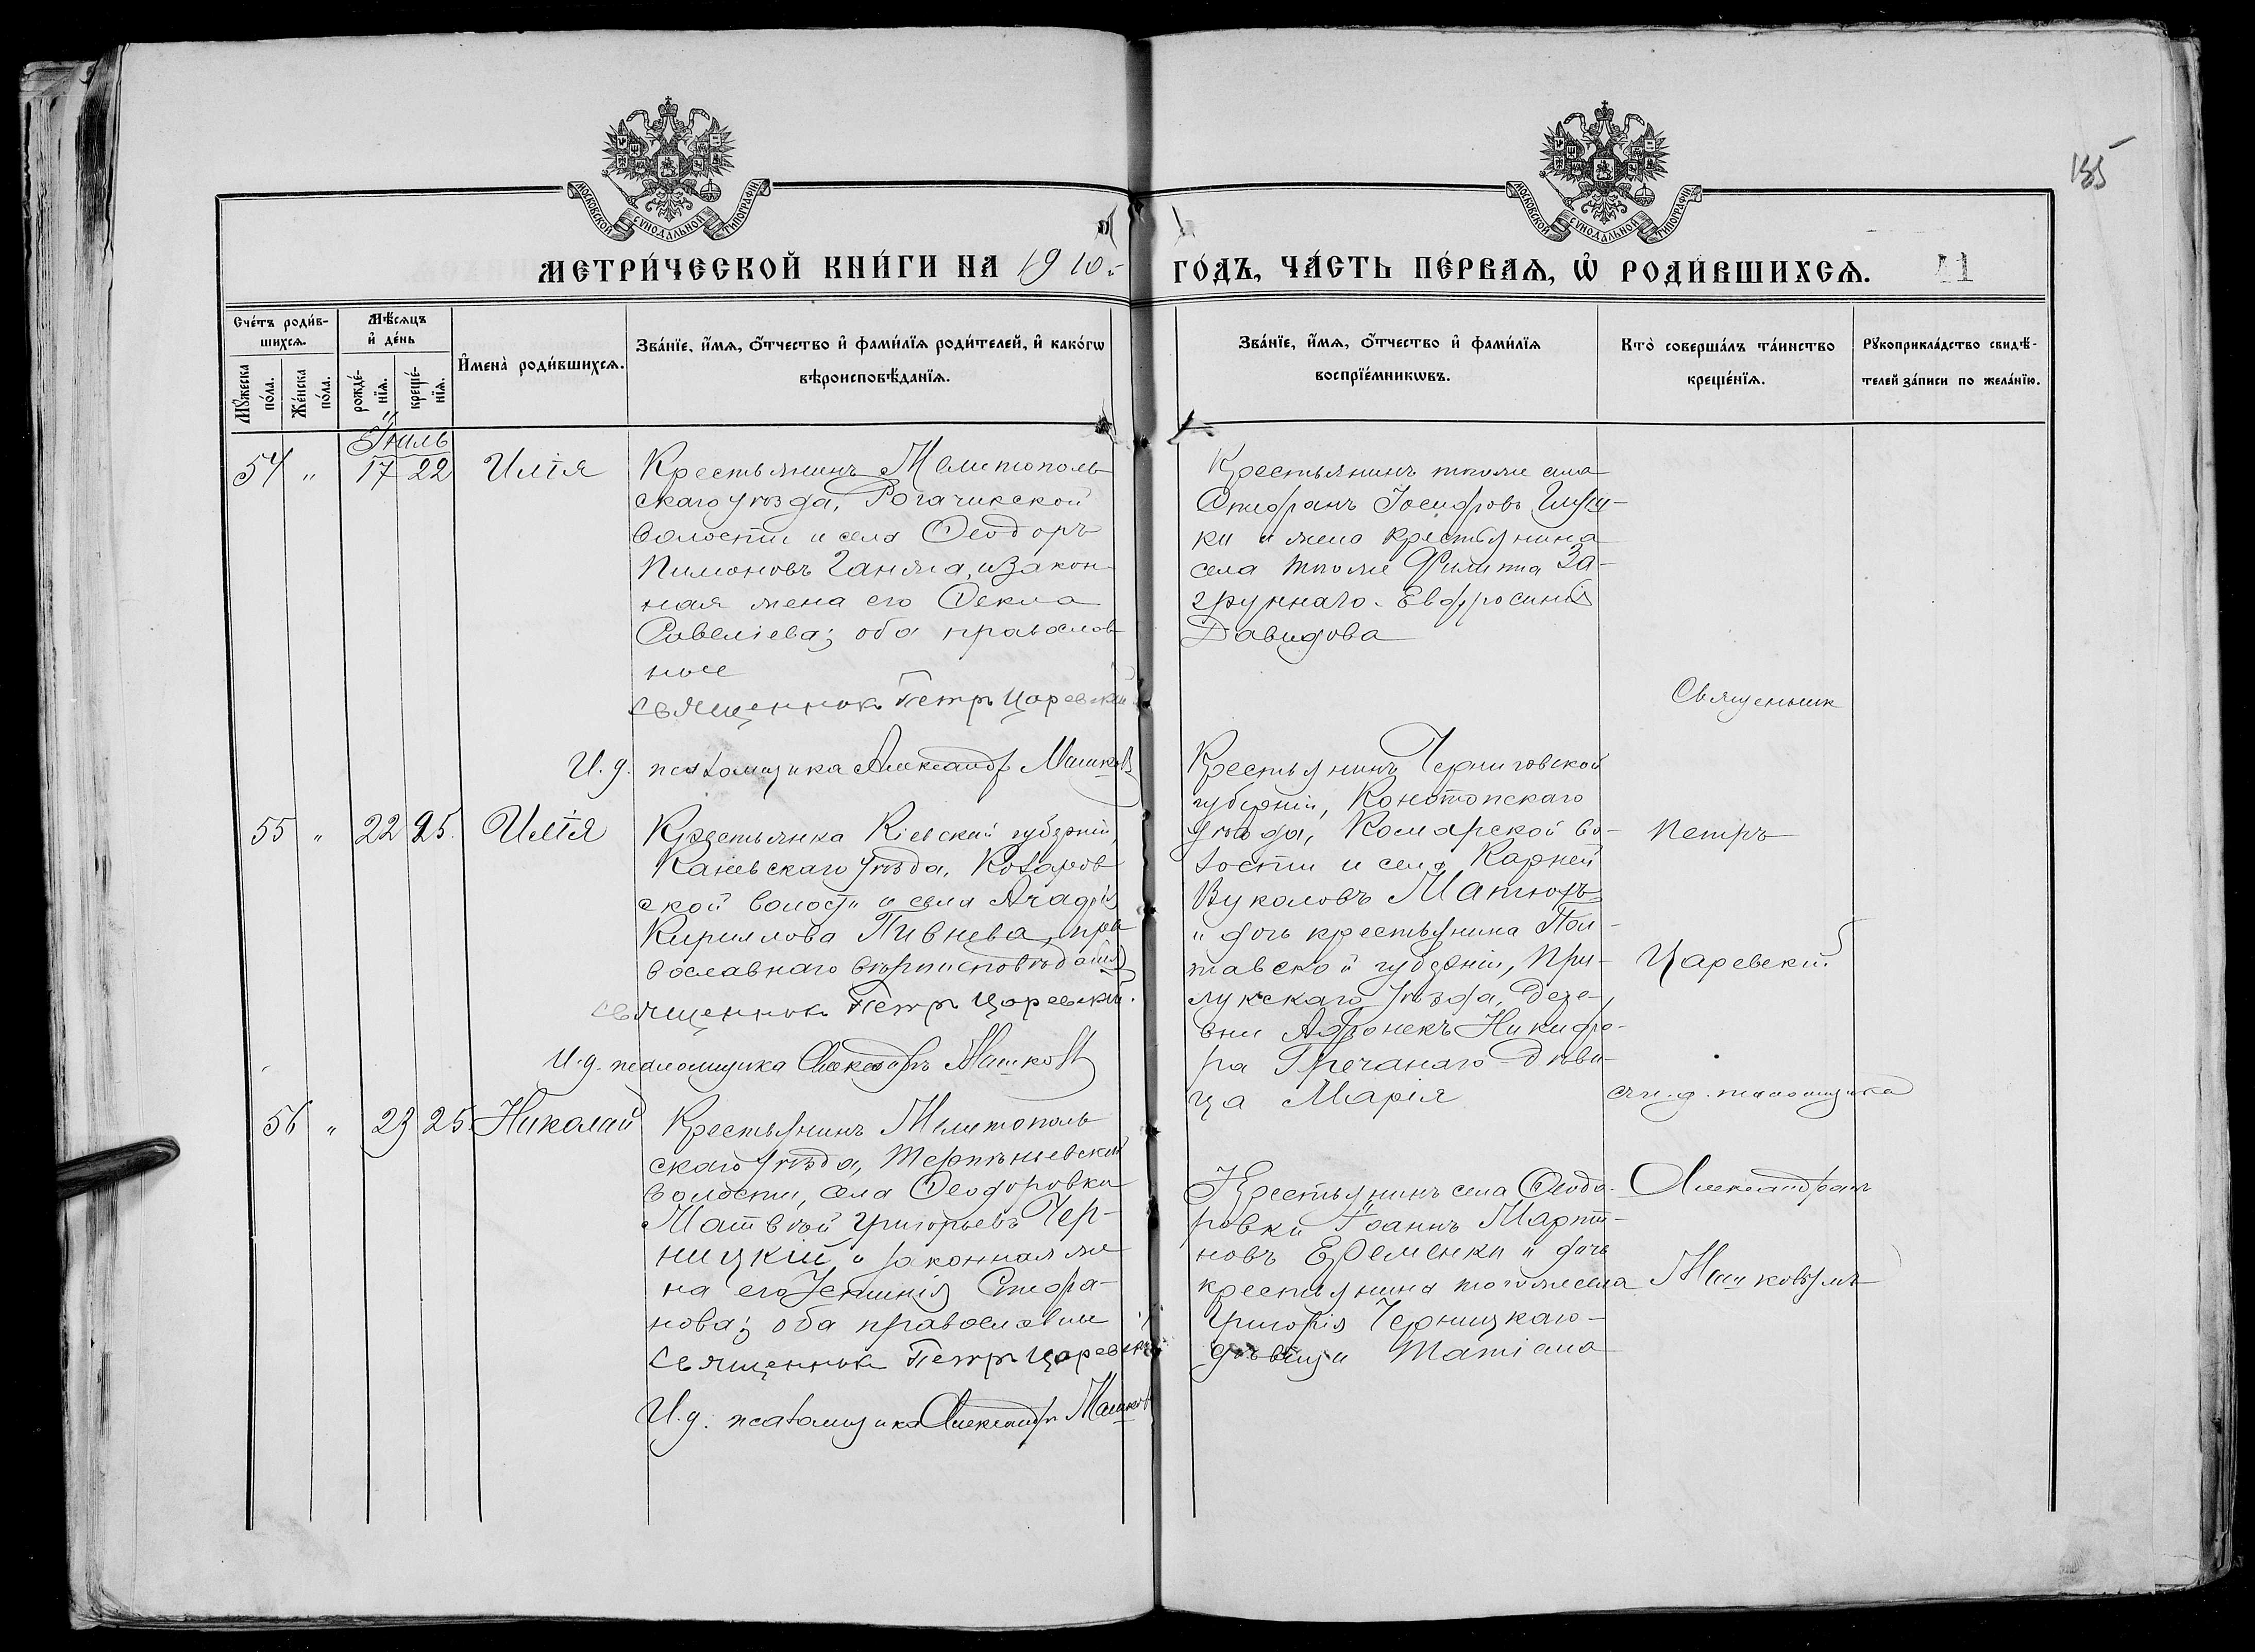 155
МОСКОВСКОЙ СѴНОДАЛЬНОЙ ТИПОГРАФІИ
МОСКОВСКОЙ СѴНОДАЛЬНОЙ ТИПОГРАФІИ
МЕТРИ́ЧЕСКОЙ КНИ́ГИ НА 1910.
ГО́ДЪ, ЧА́СТЬ ПЕ́РВАѦ, Ѡ҆ РОДИ́ВШИХСѦ. 41
Сче́тъ роди́в-
шихсѧ.
Му́жеска по́ла.
Же́нска по́ла.
Мѣ́сѧцъ
и҆ де́нь
рожде́-
нїѧ.
креще́-
нїѧ.
И҆мена̀ роди́вшихсѧ.
Зва́нїе, и҆́мѧ, ѻ҆́тчество и҆ фами́лїѧ роди́телей, и҆ како́гѡ
вѣроисповѣ́данїѧ.
Зва́нїе, и҆́мѧ, ѻ҆́тчество и҆ фами́лїѧ
воспрїе́мникѡвъ.
Кто̀ соверша́лъ та́инство
креще́нїѧ.
Рꙋкоприкла́дство свидѣ́-
телей за́писи по жела́нїю.
Іюль
54 " 17 22 Илія
Крестьянинъ Мелитополь
скаго уѣзда, Рогачикской
волости и села Ѳеодоръ
Пимоновъ Ганжа, и закон
ная жена его Ѳекла
Савеліева; оба православ
ные
священникъ Петръ Царевскій
И. д. псаломщика Александръ Машковъ
Крестьянинъ того же села
Стефанъ Іосифовъ
ки и жена крестьянина
села того же Филиппа За-
груннаго Евфросинія
Давидова
55 " 22 25. Илія
Крестьянка Кіевской губерніи,
Каневскаго уѣзда, Козаров
ской волости и села
Кириллова Пивнева, пра
вославнаго вѣроисповѣданія
священникъ Петръ Царевскій.
И. д. псаломщика Александръ Машковъ
Крестьянинъ Черниговской
губерніи, Конотопскаго
уѣзда, во-
лости и села Карней
Вукаловъ
и дочь крестьянина Пол-
тавской губерніи, При-
лукскаго уѣзда, дере-
вни Никифо-
ра Гречанаго дѣви-
ца Марія
56 " 23 25 Николай
Крестьянинъ Мелитополь
скаго уѣзда, Терпѣньевской
волости, села Ѳеодоровки
Матвѣй Григорьевъ Чер-
ницкій и законная же
на его Стефа-
нова; оба православные
священникъ Петръ Царевскій
И. д. псаломщика Александръ Машковъ
Крестьянинъ села Ѳеодо-
ровки Іоаннъ Марти-
новъ Еременко и дочь
крестьянина того же села
Григорія Черницкаго
дѣвица Татіана
Священникъ
Петръ
Царевскій
съ и. д. псаломщика
Александромъ
Машковымъ